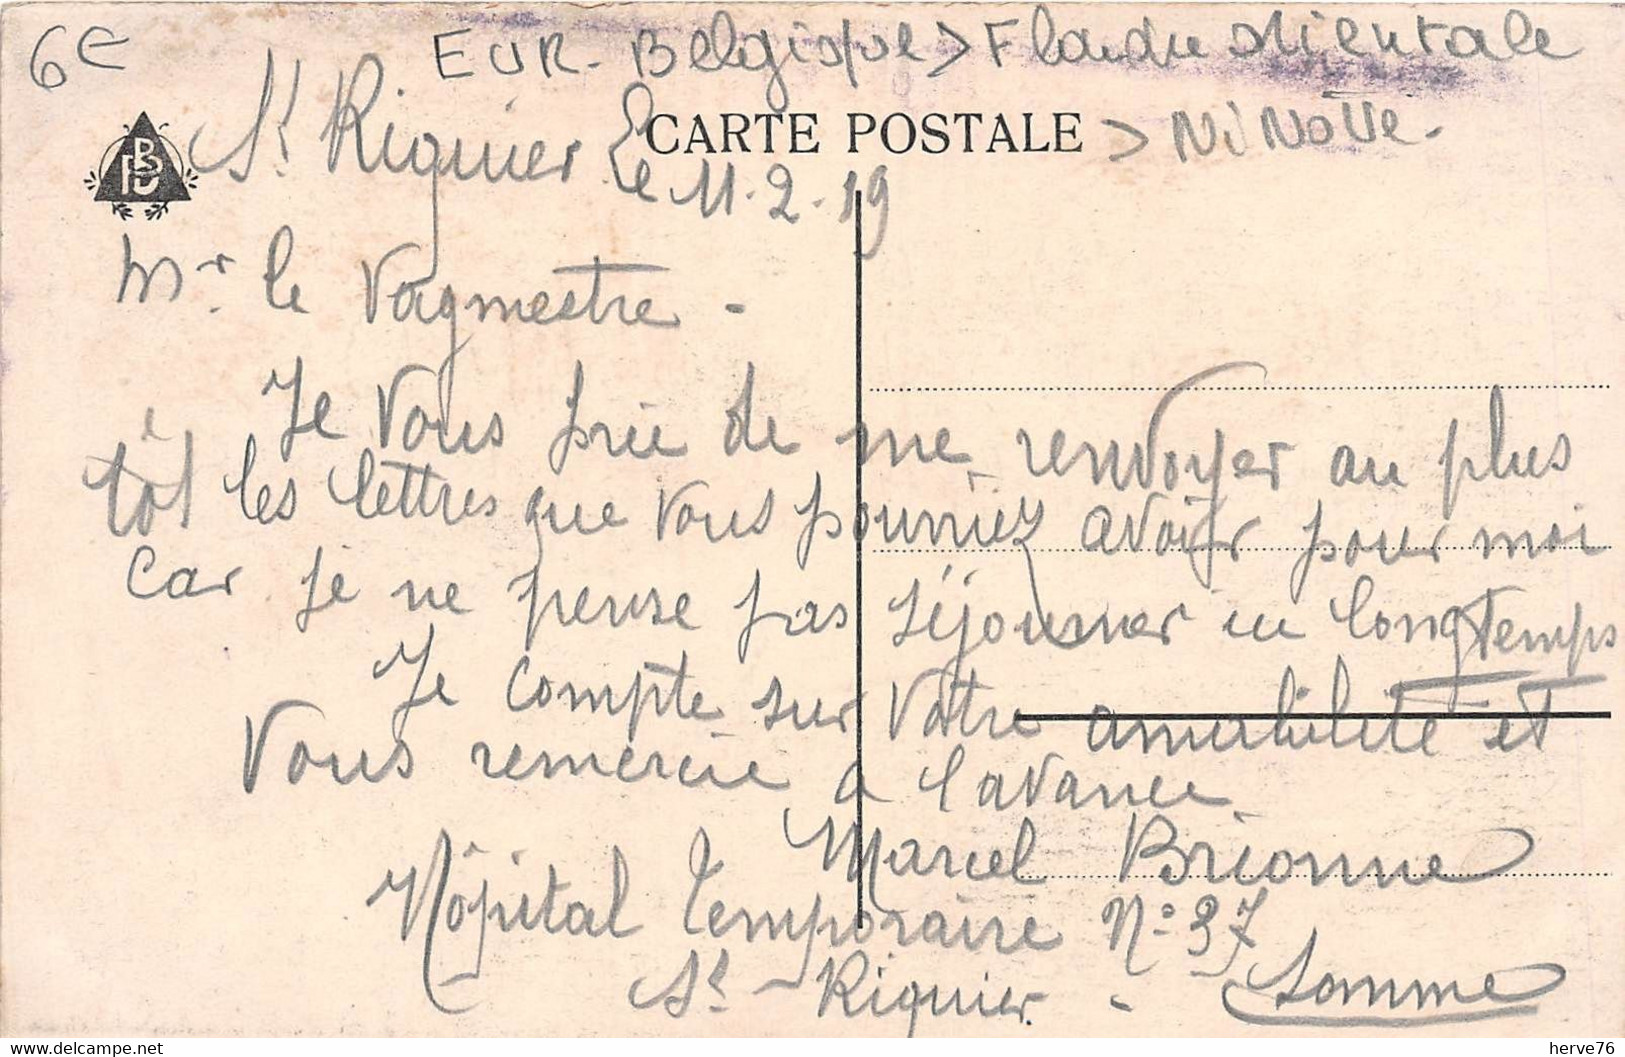 6€
EUR - Belgique > Flandre orientale
> NiNove -
CARTE POSTALE
St Riquier Le 11.2.19
Mr. le Vagmestre -
Je vous prie de me renvoyer au plus
tôt les lettres que vous pourriez avoir pour moi
car je ne pense pas séjourner ici longtemps
Je compte sur votre amabilité et
vous remercie a l'avance
Marcel Brionne
Hôpital Temporaire N° 37
St - Riquier - Somme
herve76